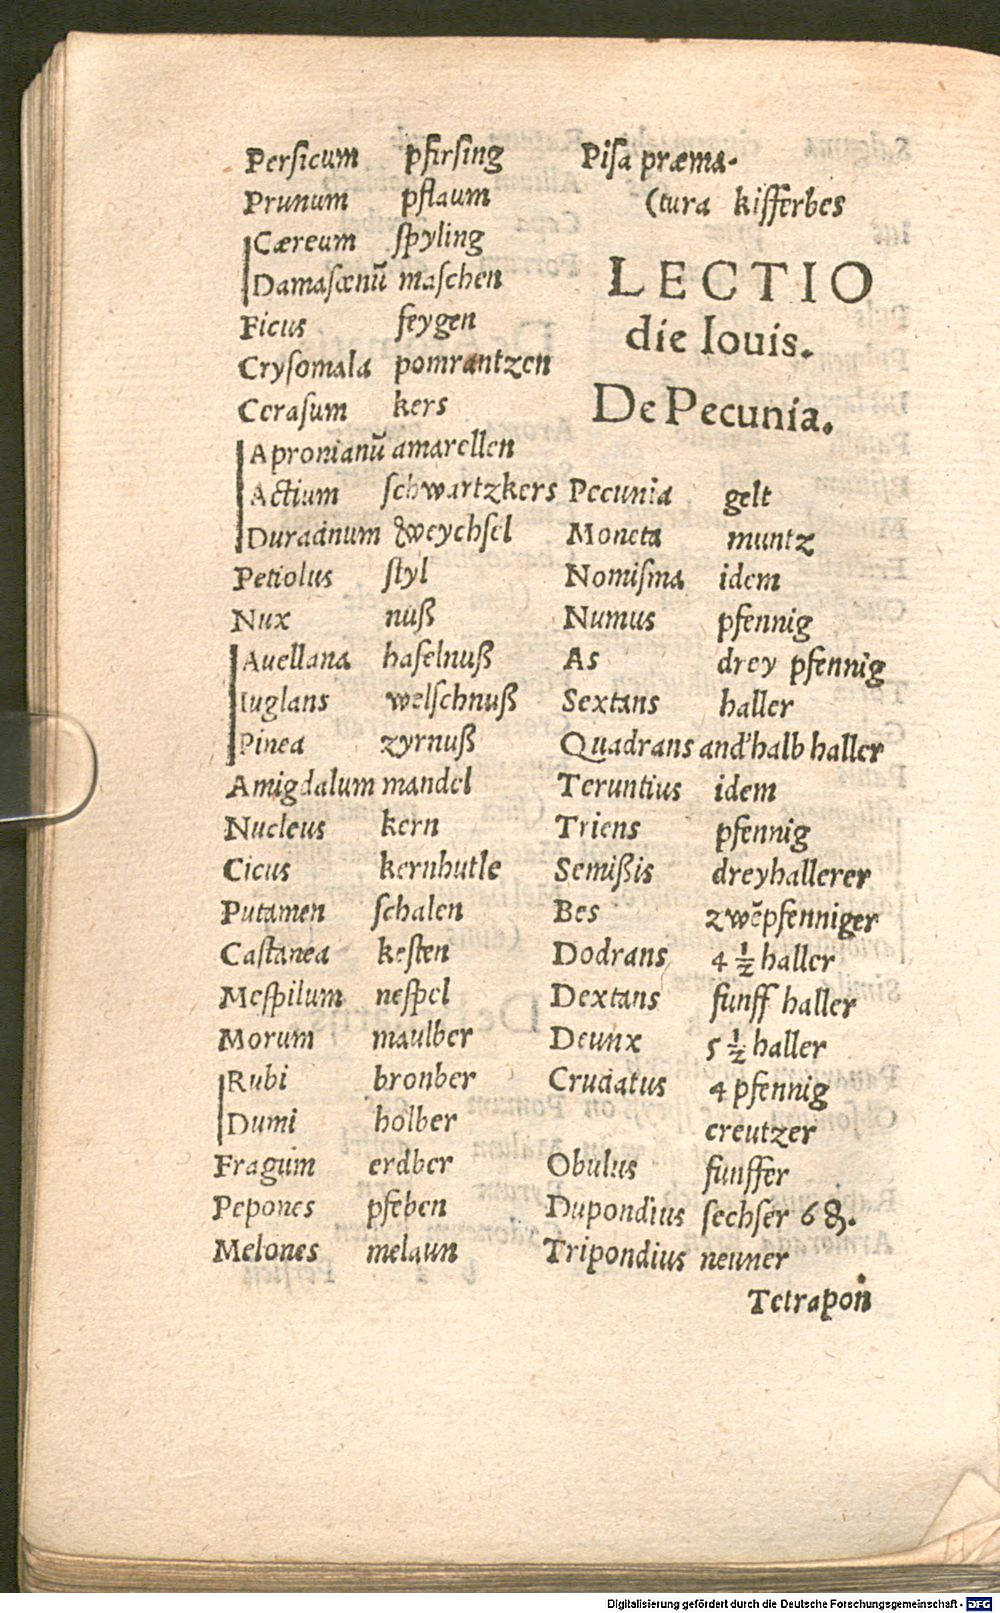 Perſicum pfirſing
Prunum pflaum
Cæreum ſpyling
Damaſcenū maſchen
Ficus feygen
Cryſomala pomrantzen
Ceraſum kers
Apronianū amarellen
Actium ſchwartzkers
Duracinum weychſel
Petiolus ſtyl
Nux nuß
Auellana haſelnuß
Iuglans welſchnuß
Pinea zyrnuß
Amigdalum mandel
Nucleus kern
Cicus kernhutle
Putamen ſchalen
Caſtanea keſten
Meſpilum neſpel
Morum maulber
Rubi bronber
Dumi holber
Fragum erdber
Pepones pfeben
Melones melaun
Piſa præma-
(tura kifferbes
LECTIO
die Iouis.
De Pecunia.
Pecunia gelt
Moneta muntz
Nomiſma idem
Numus pfennig
As drey pfennig
Sextans haller
Quadrans and'halb haller
Teruntius idem
Triens pfennig
Semißis dreyhallerer
Bes zwēpfenniger
Dodrans 4 ½ haller
Dextans funff haller
Deunx 5 ½ haller
Cruciatus 4 pfennig
creutzer
Obulus funffer
Dupondius ſechſer 6 ₰.
Tripondius neuner
Tetrapon
Digitalisierung gefördert durch die Deutsche Forschungsgemeinschaft - DFG